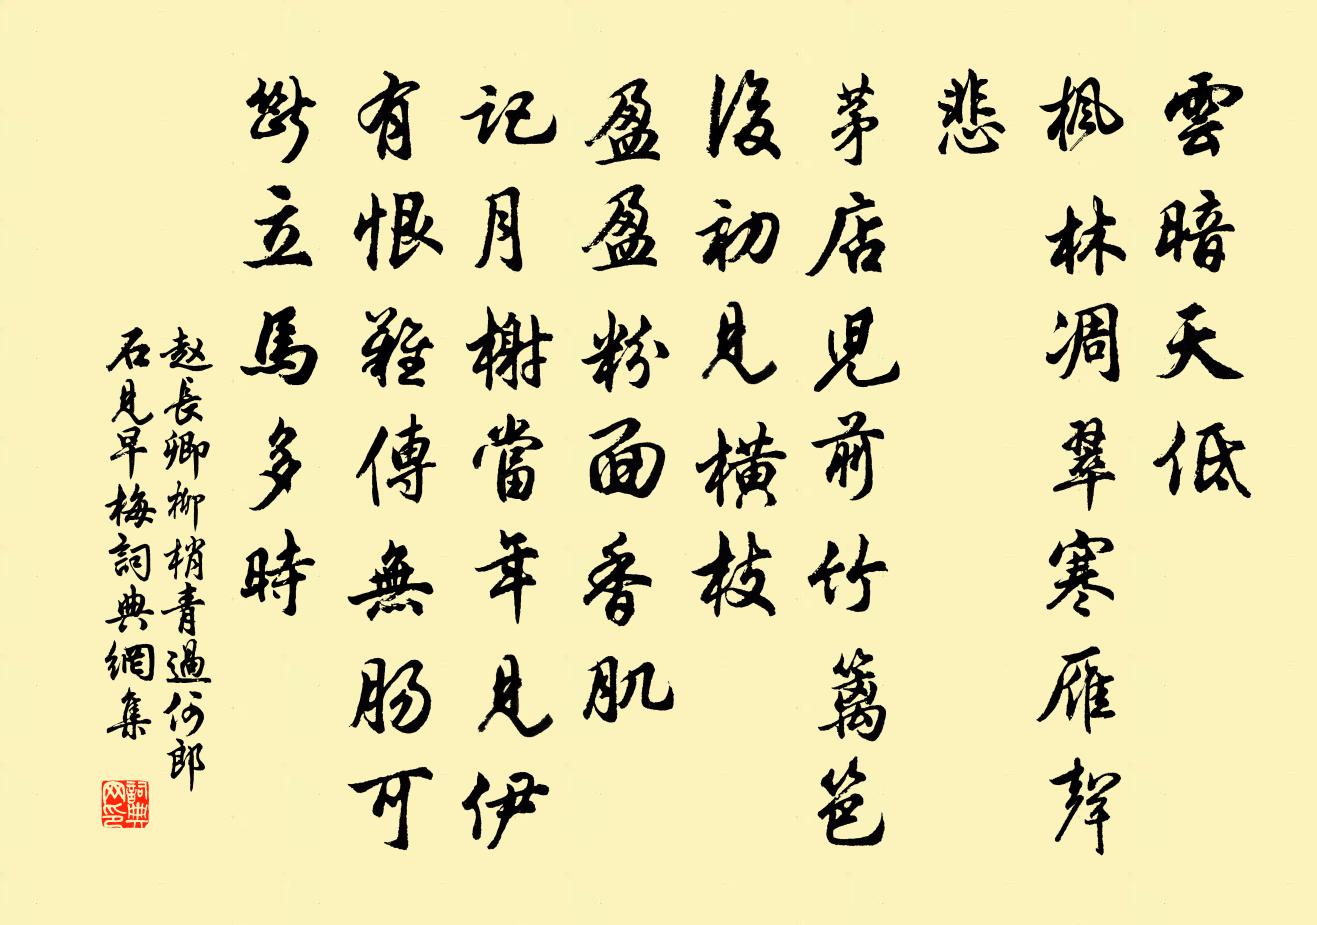 雲暗天低
楓林凋翠寒雁聲
悲
茅店児前竹籬笆
後初見橫枝
盈盈粉面香肌
記月榭當年見伊
有恨難傳無腸可
斷立馬多時
赵長卿柳梢青過何郎
石見早梅詞典網集
詞典
网印